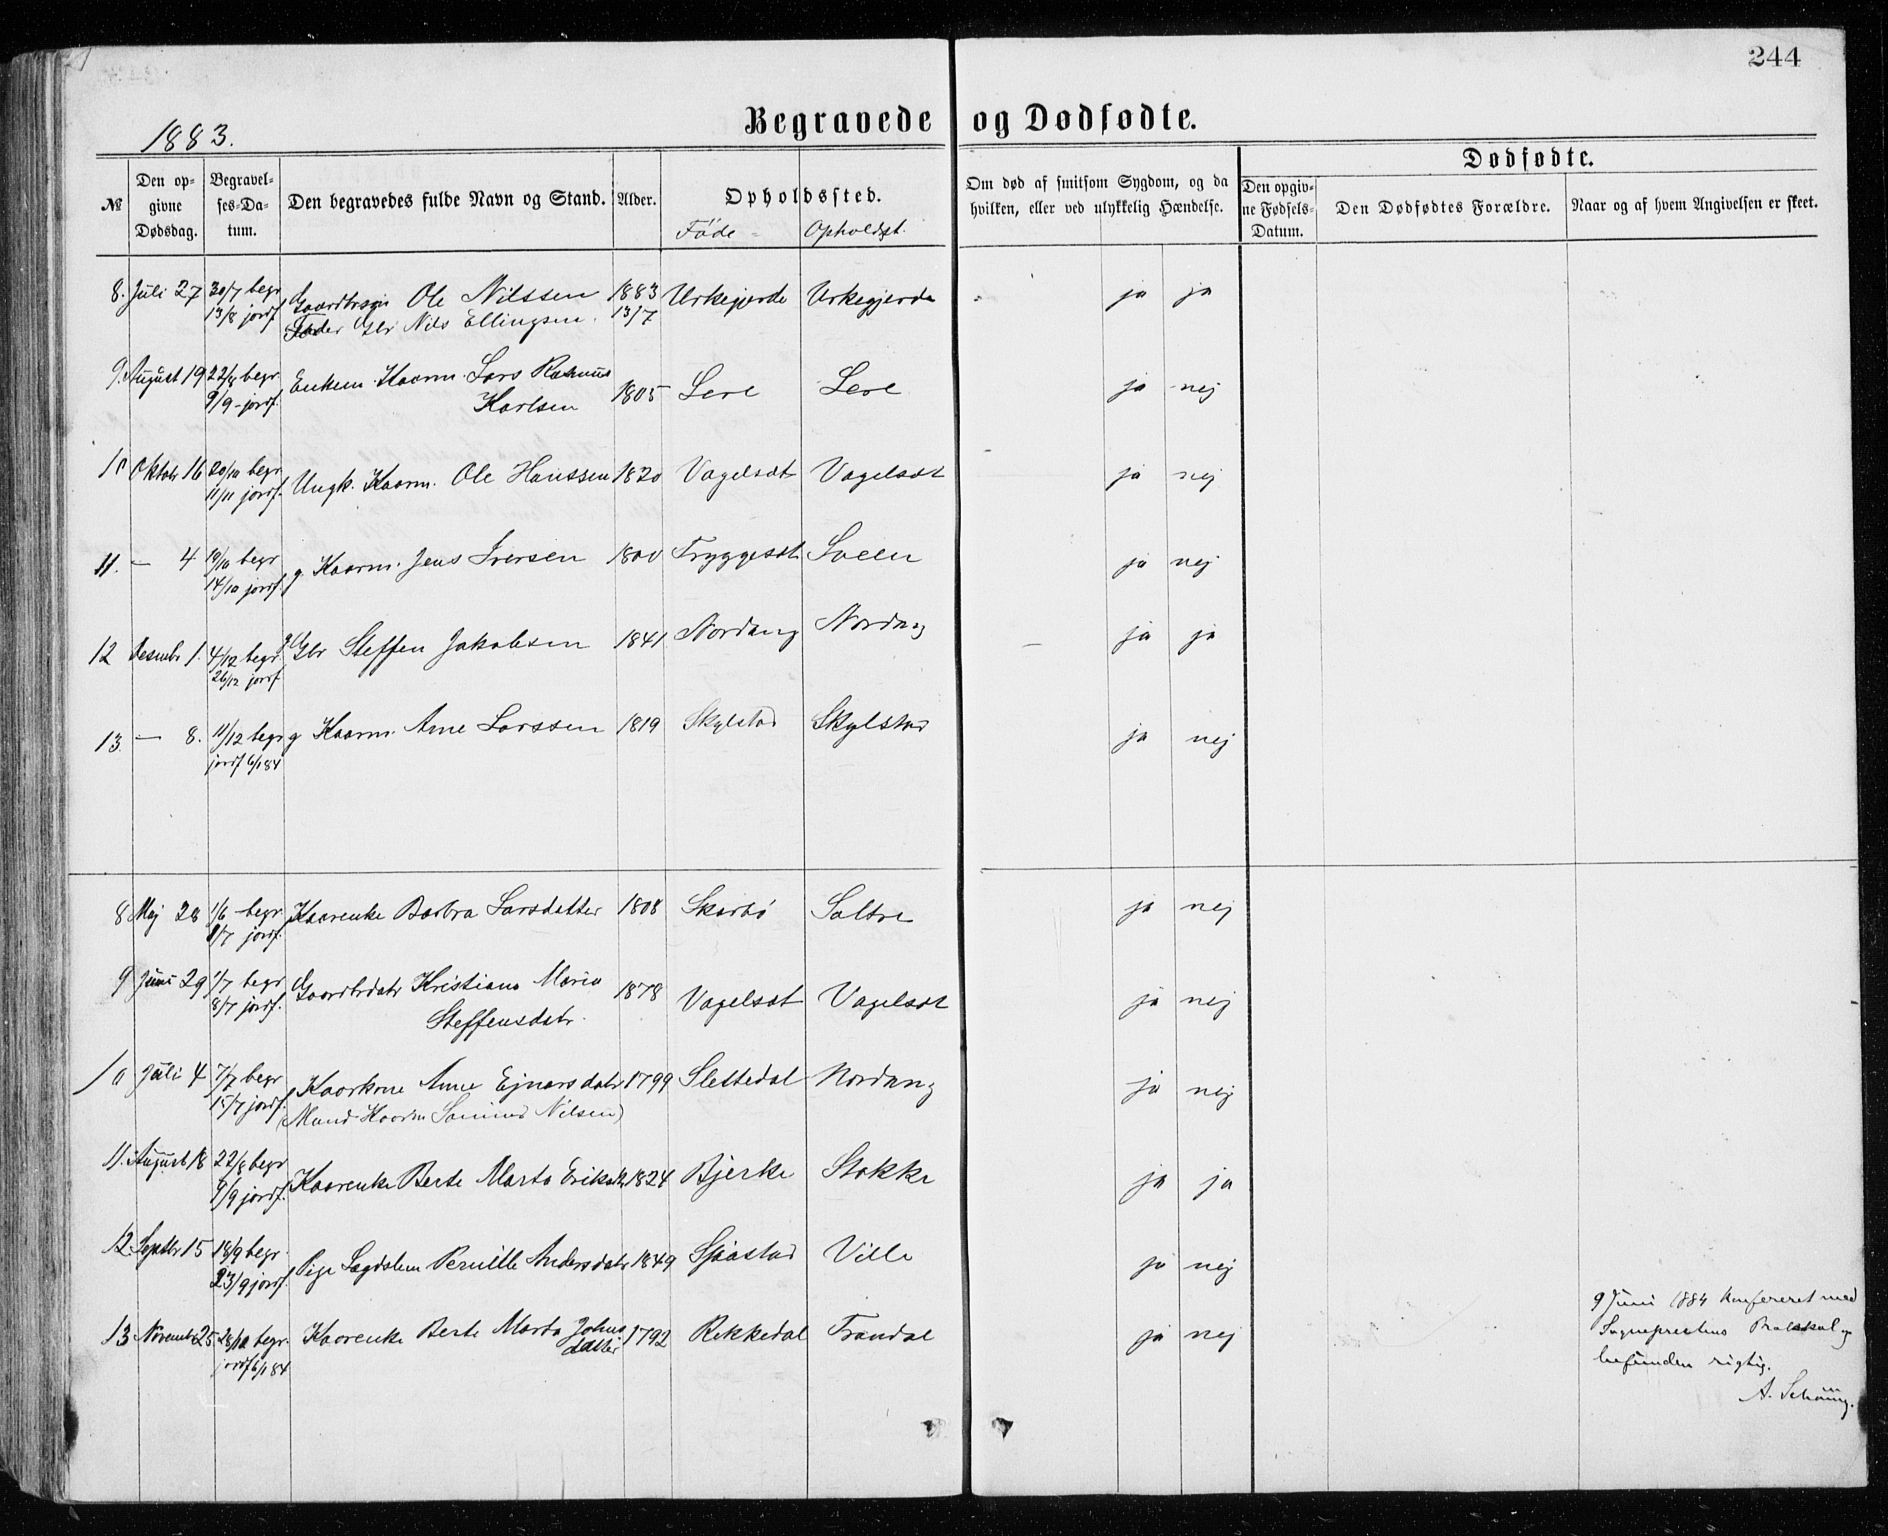 244
Begravede og Dødfødte.
1883.
Dødfødte.
№ Den op-givne Dødsdag. Begravel-ses-Da-tum. Den begravedes fulde Navn og Stand. Alder. Opholdssted. Om død af smitsom Sygdom, og da hvilken, eller ved ulykkelig Hændelse. Den opgiv-ne Fødsels-Datum. Den Dødfødtes Forældre. Naar og af hvem Angivelsen er skeet.
Föde- Opholdsst.
8. Juli 27 30/7 begr Gaardbrsøn Ole Nilssen 1883 Urkegjerde Urkegjerde ja ja
13/8 jordf Fader Gbr Nils Ellingsen. 13/7
9. August 19 22/8 begr Enkem. Kaarm. Lars Rasmus 1805 Leve Leve ja nej
9/9 - jordf. Karlsen
10 Oktobr 16 20/10 begr Ungk. Kaarm. Ole Hanssen 1820 Vagelsæt Vagelsæt ja nej
11/11 jordf.
11. — 4 10/10 begr g. Kaarm. Jens Iversen 1800 Tryggesæt Loeen ja nej
14/10 jordf.
12 Desembr 1. 4/12 begr g Gbr Steffen Jakobsen 1841 Nordang Nordang — ja ja
26/12 jordf
13 — 8. 11/12 begr g Kaarm. Arne Larssen 1819 Skylstad Skylstad ja nej
jordf 6/1 84
8 Maj 28 1/6 - begr Kaarenke Barbra Larsdatter 1808 Skarbö Saltre ja nej
8/7 jordf.
9 Juni 29 1/7 begr Gaardbrdatr Kristiane Maria 1878 Vagelsæt Vagelsæt ja nej
8/7 jordf. Steffensdatr.
10 Juli 4 7/7 begr Kaarkone Anne Ejnarsdatr 1799 Slettedal Nordang ja nej
15/7 jordf. (Mand Kaarm Nilsen)
11. August 18 22/8 begr Kaarenke Berte Marta Eriksdtr 1824 Bjerke Stokke ja ja
9/9 jordf.
12. Septbr 15 18/9 begr. Pige Lægdslem Pernille Andersdatr 1849 Sjaastad Ville ja nej
23/9 jordf
13 Novembr 25 28/10 begr. Kaarenke Berte Marta Johns 1792 Rekkedal Trandal ja nej
jordf 6/1 84 datter
9 Juni 1884 Konfereret med
Sognepræstens Protokol og
befunden rigtig.
A. Schöning.